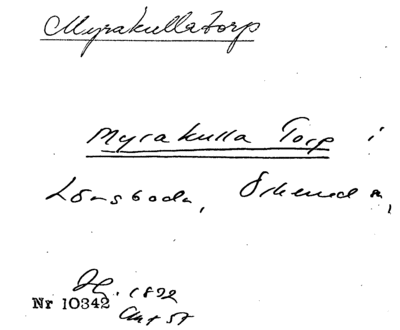 Myrakullatorp
Myrakulla Torp i
Lönsboda, Örkened sn,
1829
Nr 10342